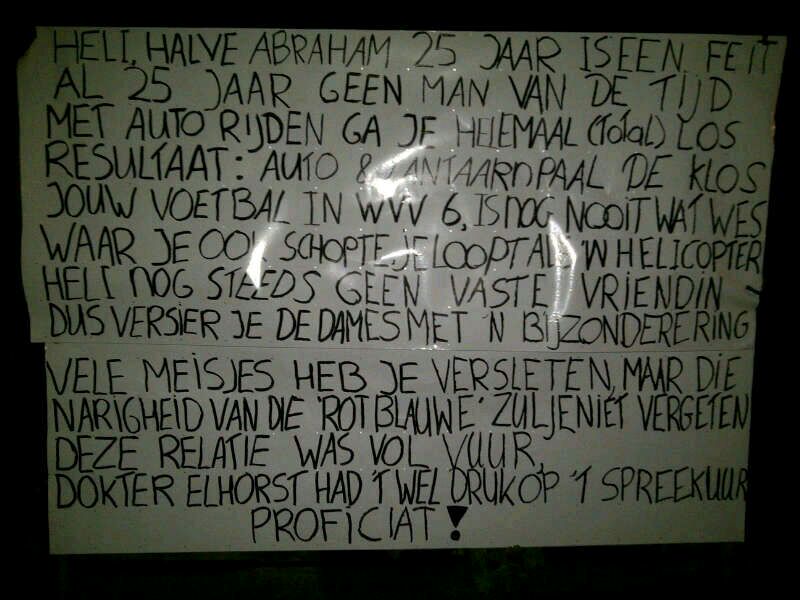 HELI, HALVE ABRAHAM 25 JAAR IS EEN FEIT
AL 25 JAAR GEEN MAN VAN DE TIJD
MET AUTO RIJDEN GA JE HELEMAAL (TOTAL) LOS
RESULTAAT: AUTO & LANTAARNPAAL DE KLOS
JOUW VOETBAL IN WVV 6, IS NOG NOOIT WAT WES
WAAR JE OOK SCHOPTE, JE LOOPT ALS 'N HELICOPTER
HELI NOG STEEDS GEEN VASTE VRIENDIN
DUS VERSIER JE DE DAMES MET 'N BIJZONDERE RING
VELE MEISJES HEB JE VERSLETEN, MAAR DIE
NARIGHEID VAN DIE 'ROTBLAUWE' ZUL JE NIET VERGETEN
DEZE RELATIE WAS VOL VUUR,
DOKTER ELHORST HAD 'T WEL DRUK OP 'T SPREEKUUR
PROFICIAT!